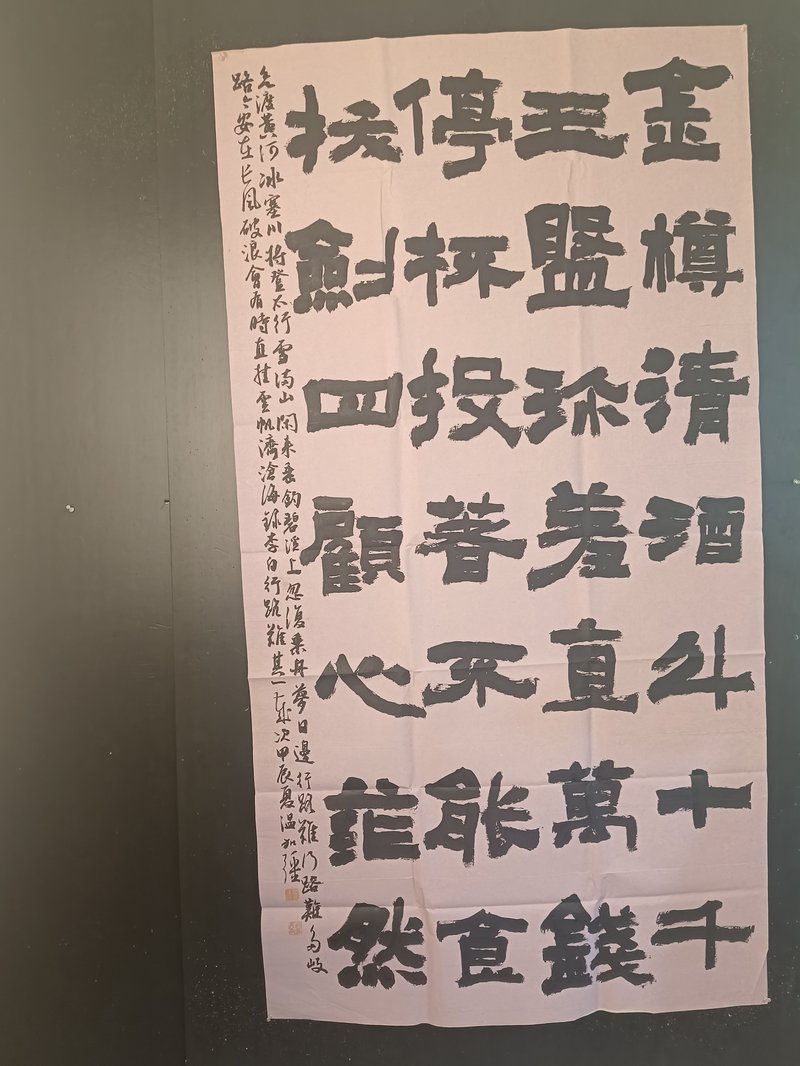 金樽清酒斗十千
玉盤珎羞直萬錢
停杯投著不能食
拔劍四顧心茫然
欲渡黄河冰塞川将登太行雪满山閑来垂釣碧溪上忽復乘舟夢日邊行路難行路難多岐
路今安在長風破浪會有時直挂雲帆濟滄海録李白行路難其一歲次甲辰夏温